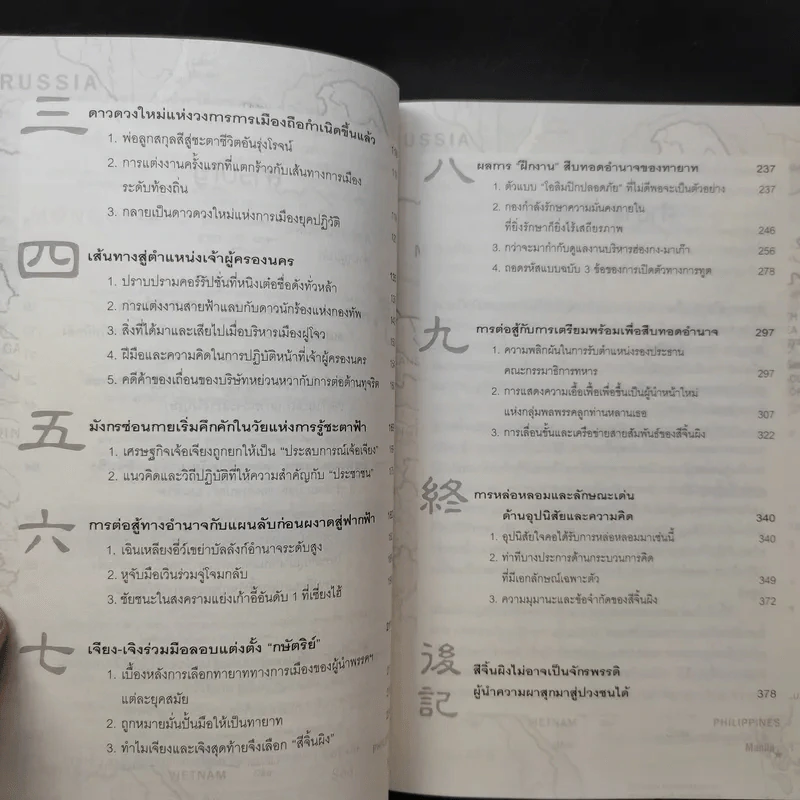 RUSSIA
三 ดาวดวงใหม่แห่งวงการการเมืองถือกำเนิดขึ้นแล้ว
1. พ่อลูกสกุลสีสู่ชะตาชีวิตอันรุ่งโรจน์
2. การแต่งงานครั้งแรกที่แตกร้าวกับเส้นทางการเมือง
ระดับท้องถิ่น
3. กลายเป็นดาวดวงใหม่แห่งการเมืองยุคปฏิวัติ
四 เส้นทางสู่ตำแหน่งเจ้าผู้ครองนคร
1. ปราบปรามคอร์รัปชั่นที่หนิงเต๋อชื่อดังทั่วหล้า
2. การแต่งงานสายฟ้าแลบกับดาวนักร้องแห่งกองทัพ
3. สิ่งที่ได้มาและเสียไปเมื่อบริหารเมืองฝูโจว
4. ฝีมือและความคิดในการปฏิบัติหน้าที่เจ้าผู้ครองนคร
5. คดีค้าของเถื่อนของบริษัทหย่วนหวากับการต่อต้านทุจริต
五 มังกรซ่อนกายเริ่มคึกคักในวัยแห่งการรู้ชะตาฟ้า
1. เศรษฐกิจเจ้อเจียงถูกยกให้เป็น "ประสบการณ์เจ้อเจียง"
2. แนวคิดและวิถีปฏิบัติที่ให้ความสำคัญกับ "ประชาชน"
六 การต่อสู้ทางอำนาจกับแผนลับก่อนผงาดสู่ฟากฟ้า
1. เฉินเหลียงอี่ว์เขย่าบัลลังก์อำนาจระดับสูง
2. หูจับมือเวินร่วมจู่โจมกลับ
3. ชัยชนะในสงครามแย่งเก้าอี้อันดับ 1 ที่เซี่ยงไฮ้
七 เจียง-เจิงร่วมมือลอบแต่งตั้ง "กษัตริย์"
1. เบื้องหลังการเลือกทายาททางการเมืองของผู้นำพรรคฯ
แต่ละยุคสมัย
2. ถูกหมายมั่นปั้นมือให้เป็นทายาท
3. ทำไมเจียงและเจิงสุดท้ายจึงเลือก "สีจิ้นผิง"
VIETNAM
RUSSIA
八 ผลการ "ฝึกงาน" สืบทอดอำนาจของทายาท 237
1. ตัวแบบ "โอลิมปิกปลอดภัย" ที่ไม่ดีพอจะเป็นตัวอย่าง 237
2. กองกำลังรักษาความมั่นคงภายใน
ที่ยิ่งรักษาก็ยิ่งไร้เสถียรภาพ 246
3. กว่าจะมากำกับดูแลงานบริหารฮ่องกง-มาเก๊า 256
4. ถอดรหัสแบบฉบับ 3 ข้อของการเปิดตัวทางการทูต 278
九 การต่อสู้กับการเตรียมพร้อมเพื่อสืบทอดอำนาจ 297
1. ความพลิกผันในการรับตำแหน่งรองประธาน
คณะกรรมาธิการทหาร 297
2. การแสดงความเอื้อเฟื้อเพื่อขึ้นเป็นผู้นำหน้าใหม่
แห่งกลุ่มพลพรรคลูกท่านหลานเธอ 307
3. การเลื่อนขั้นและเครือข่ายสายสัมพันธ์ของสีจิ้นผิง 322
終 การหล่อหลอมและลักษณะเด่น
ด้านอุปนิสัยและความคิด 340
1. อุปนิสัยใจคอได้รับการหล่อหลอมมาเช่นนี้ 340
2. ท่าทีบางประการด้านกระบวนการคิด
ที่มีเอกลักษณ์เฉพาะตัว 349
3. ความมุมานะและข้อจำกัดของสีจิ้นผิง 372
後記 สีจิ้นผิงไม่อาจเป็นจักรพรรดิ
ผู้นำความผาสุกมาสู่ปวงชนได้ 378
VIETNAM
PHILIPPINES
Manila